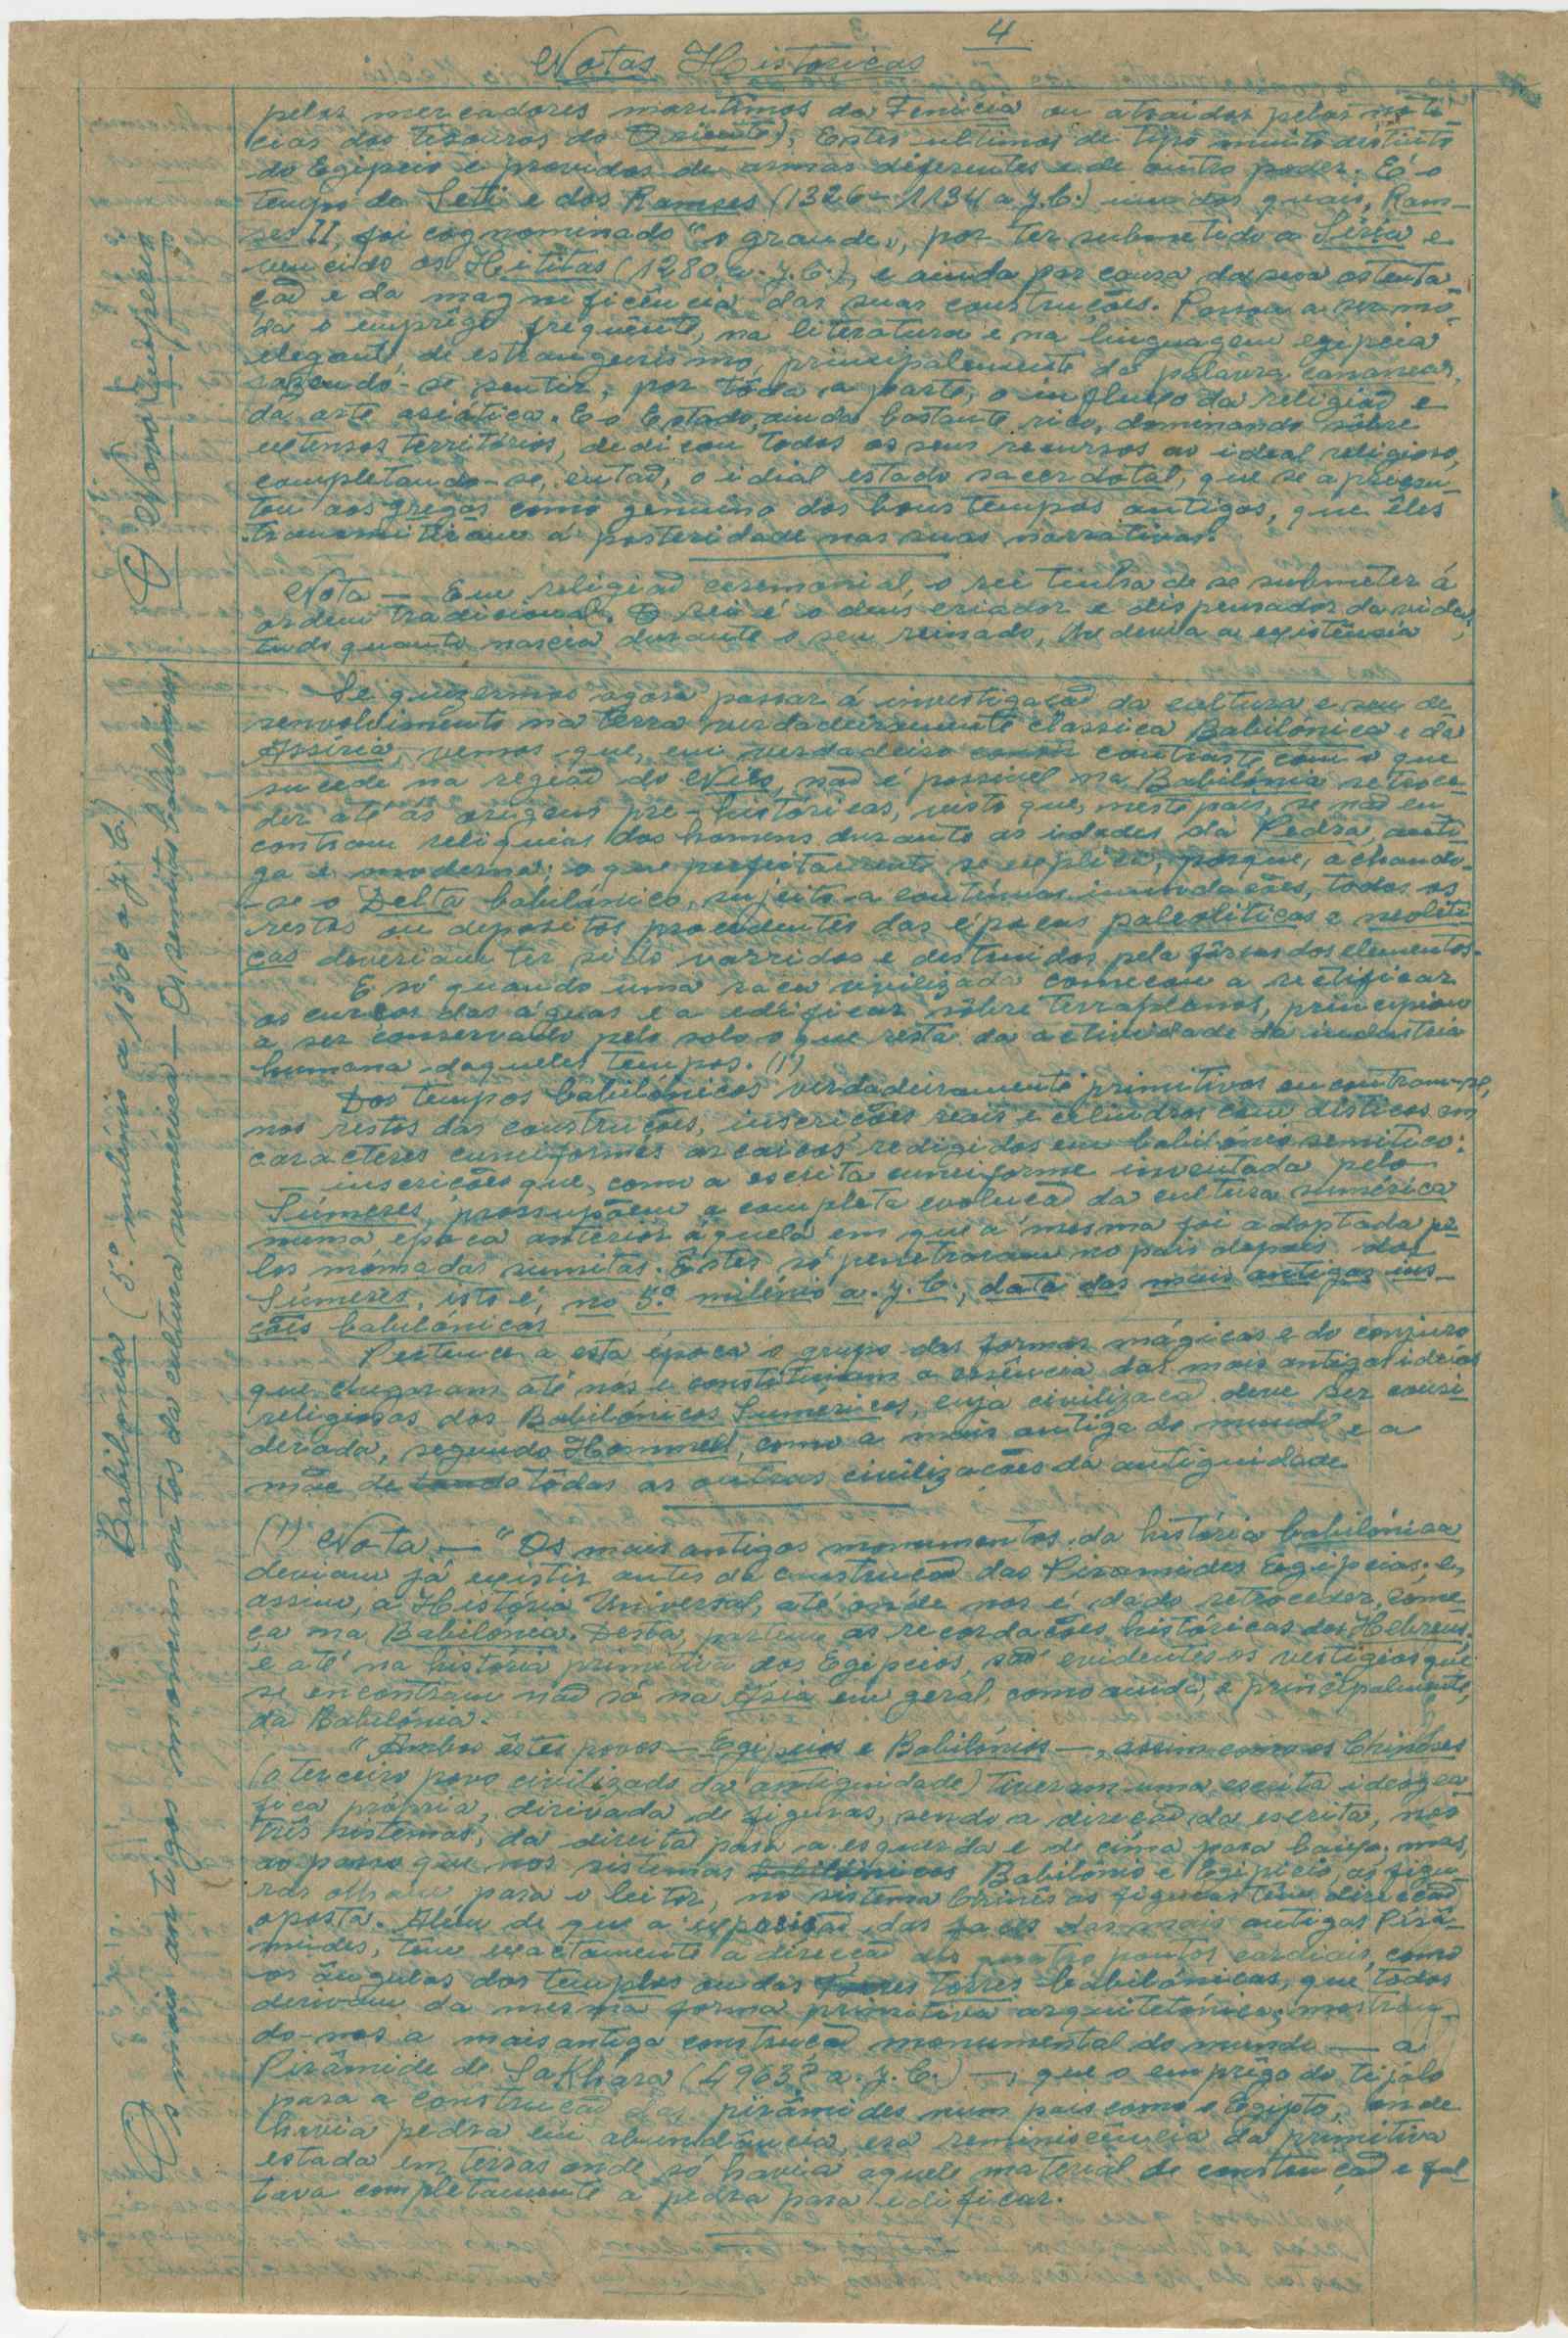 4
Notas Historicas
O Novo Império
pelos mercadores maritimos da Fenicia ou atraidos pelas noti-
cias dos tesouros do Oriente). Estes ultimos de tipo muito destinto
do Egipcio e providos de armas diferentes e de outro poder. É o
tempo de Seti e dos Ramses (1326-1134 a J.C.) um dos quais, Ram-
ses II, foi cognominado "o grande", por ter submetido a Siria e
vencido os Hetitas (1280 a. J.C.), e ainda por causa da sua ostenta-
çaõ e da magnificência das suas construcões. Passou a ser mo-
da o emprêgo frequênte, na literatura e na linguagem egipcia
elegante, de estrangeirismo, principalmente da palavra cananeas,
fazendo-se sentir, por tôda a parte, o influxo da religiaõ e
da arte asiatica. E o Estado, ainda bastante rico, dominando sôbre
extensos territórios, dedicou todos os seus recursos ao ideal religioso,
completando-se, entaõ, o idial estado sacerdotal, que se apresen-
tou aos gregos como genuino dos bons tempos antigos, que êles
transmitiram á posteridade nas suas narrativas.
Nota — Em religiaõ ceremonial, o rei tinha de se submeter á
ordem tradicional. O rei é o deus criador e dispensador da vida;
tudo quanto nascia durante o seu reinado, lhe devia a existência
Babilónia (5.º milénio a 1500 a J.C.)
Os mais antigos monumentos da cultura sumérica — Os semitas babilónicos
Se quizermos agora passar á investigaçaõ da cultura e seu de-
senvolvimento na terra verdadeiramente classica Babilónica e da
Assiria, vemos que, em verdadeiro contraste com o que
sucede na regiaõ do Nilo, naõ é possivel na Babilónia retroce-
der até ás origens pre-históricas, visto que, neste pais, se naõ en-
contram reliquias dos homens durante as idades da Pedra, anti-
ga e moderna; o que perfeitamente se explica, porque, achando-
-se o Delta babilónico, sujeito a contínuas inundacões, todos os
restos ou depositos procedentes das épocas paleoliticas e neoliti-
cas deveriam ter sido varridos e destruidos pela fôrça dos elementos.
E só quando uma raca civilizada comecou a rectificar
os cursos das águas e a edificar sôbre terraplanos, principiou
a ser conservado pelo solo o que resta da actividade da industria
humana daqueles tempos. (1)
Dos tempos babilónicos verdadeiramente primitivos encontram-se,
nos restos das construcões, inscricões reais e cilindros com disticos em
caracteres cuneiformes arcaicos redigidos em babilónio semitico:
— inscricões que, como a escrita cuneiforme inventada pelo
Súmeres, pressupõem a completa evolucaõ da cultura sumérica
numa época anterior áquela em que a mesma foi adoptada pe-
los nómadas semitas. Êstes só penetraram no pais depois dos
Súmeres, isto é, no 5.º milénio a. J. C., data das mais antigas ins-
cões babilónicas
Pertence a esta época o grupo das formas mágicas e do conjuro
que chegaram até nós e constituiam a essência das mais antigas ideias
religiosas dos Babilónicos Suméricos, cuja civilizacaõ deve ser consi-
derada, segundo Hommel, como a mais antiga do mundo e a
mãe de tôdas as outras civilizacões da antiguidade
(1) Nota — "Os mais antigos monumentos da história babilónica
deviam já existir antes da construcaõ das Piramides Egipcias; e,
assim, a História Universal, até onde nos é dado retroceder, come-
ça na Babilónia. Desta, partem as recordacões históricas dos Hebreus,
e até na história primitiva dos Egipcios, saõ evidentes os vestigios que
se encontram naõ só na Ásia em geral, como ainda, e principalmente,
da Babilónia.
"Ambos êstes povos — Egipcios e Babilónios —, assim como os Chinêses
(o terceiro povo civilizado da antiguidade) tiveram uma escrita ideogra-
fica própria, dirivada de figuras, sendo a direcaõ da escrita, nos
três sistemas, da direita para a esquerda e de cima para baixo. mas,
ao passo que nos sistemas Babilónio e Egipcio, as figu-
ras olham para o leitor, no sistema Chinês as figuras têm direccaõ
oposta. Além de que a exposicaõ das faces das mais antigas Pirâ-
mides, têm exactamente a direcçaõ dos quatro pontos cardiais, como
os ângulos dos templos ou das torres babilónicas, que todos
derivam da mesma forma primitiva arquitetónica; mostran-
do-nos a mais antiga construçaõ monumental do mundo — a
Pirâmide de Sakhára (4963? a. J. C.) —, que o emprêgo do tijolo
para a construcaõ das pirâmides num pais como o Egipto, onde
havia pedra em abundância, era reminiscência da primitiva
estada em terras onde só havia aquele material de construçaõ e fal-
tava completamente a pedra para edificar.